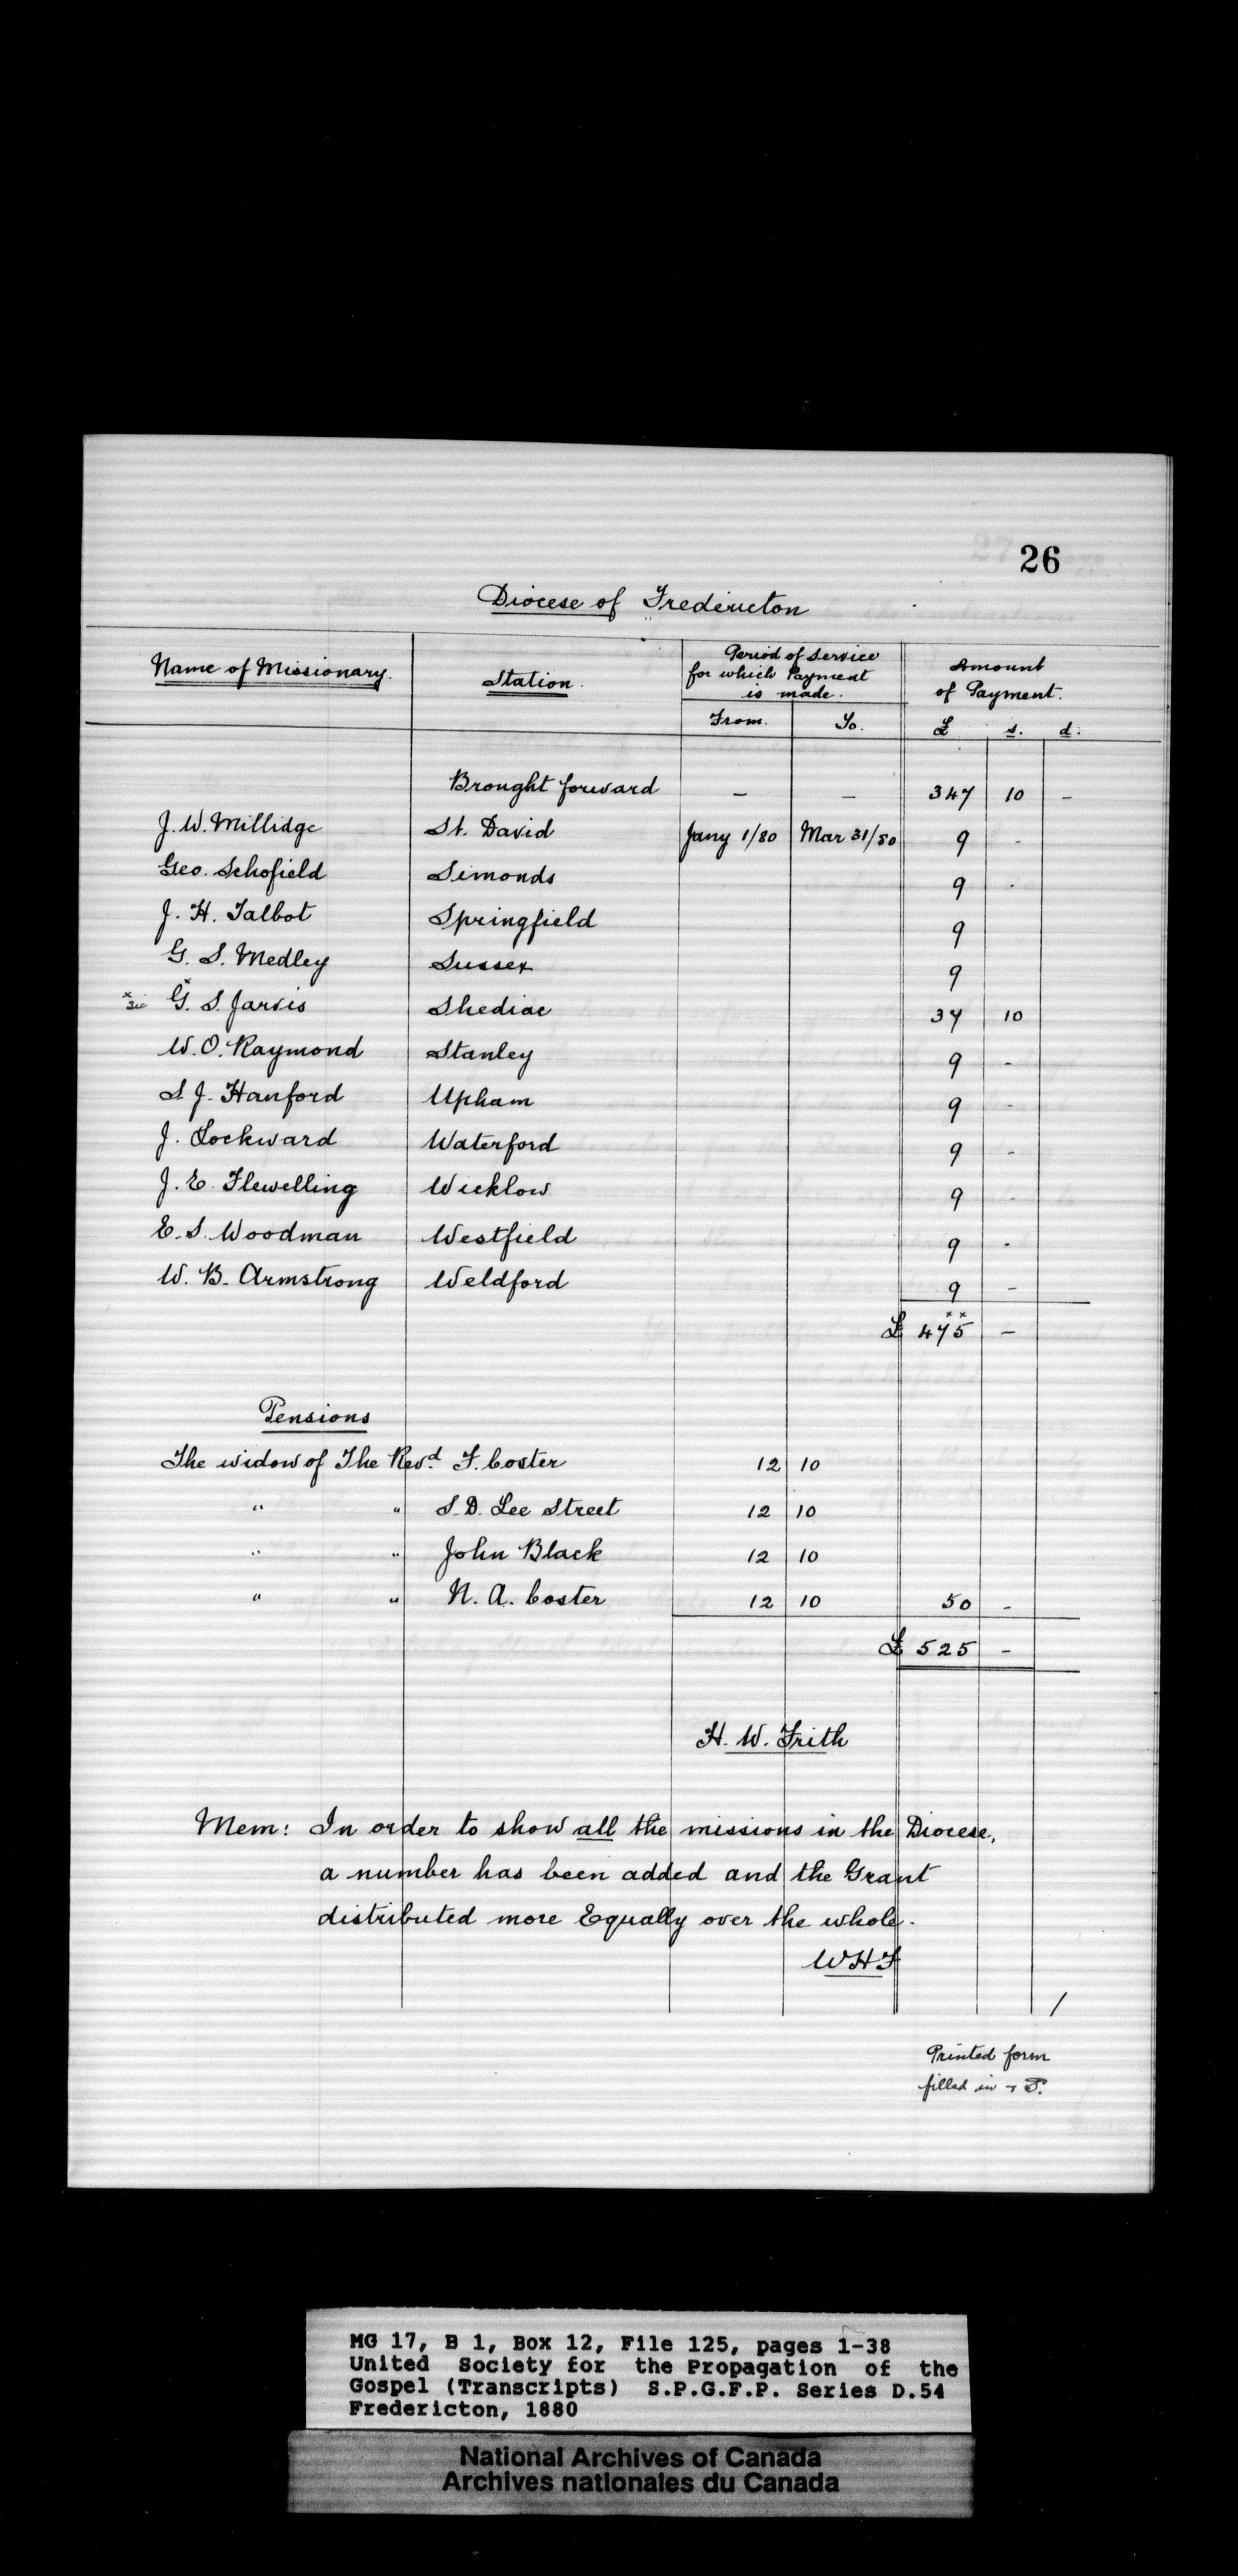 26
Diocese of Fredericton
Name of Missionary. Station. Period of Service for which Payment is made. Amount of Payment.
From. To. £ s. d.
Brought forward — — 347 10 —
J. W. Millidge St. David Jany 1/80 Mar 31/80 9 -
Geo. Schofield Simonds 9 -
J. H. Talbot Springfield 9
G. S. Medley Sussex 9
x sic G. S. Jarvis Shediac 37 10
W. O. Raymond Stanley 9 -
S J. Hanford Upham 9 -
J. Lockward Waterford 9 -
J. E. Flewelling Wicklow 9 -
E. S. Woodman Westfield 9 -
W. B. Armstrong Weldford 9 -
£ 475 —
Pensions
The widow of The Revd. F. Coster 12 10
" " S. D. Lee Street 12 10
" " John Black 12 10
" " N. A. Coster 12 10 50 -
£ 525 -
H. W. Frith
Mem: In order to show all the missions in the Diocese,
a number has been added and the Grant
distributed more Equally over the whole.
WHF
/
Printed form
filled in
MG 17, B 1, Box 12, File 125, pages 1-38
United Society for the Propagation of the
Gospel (Transcripts) S.P.G.F.P. Series D.54
Fredericton, 1880
National Archives of Canada
Archives nationales du Canada